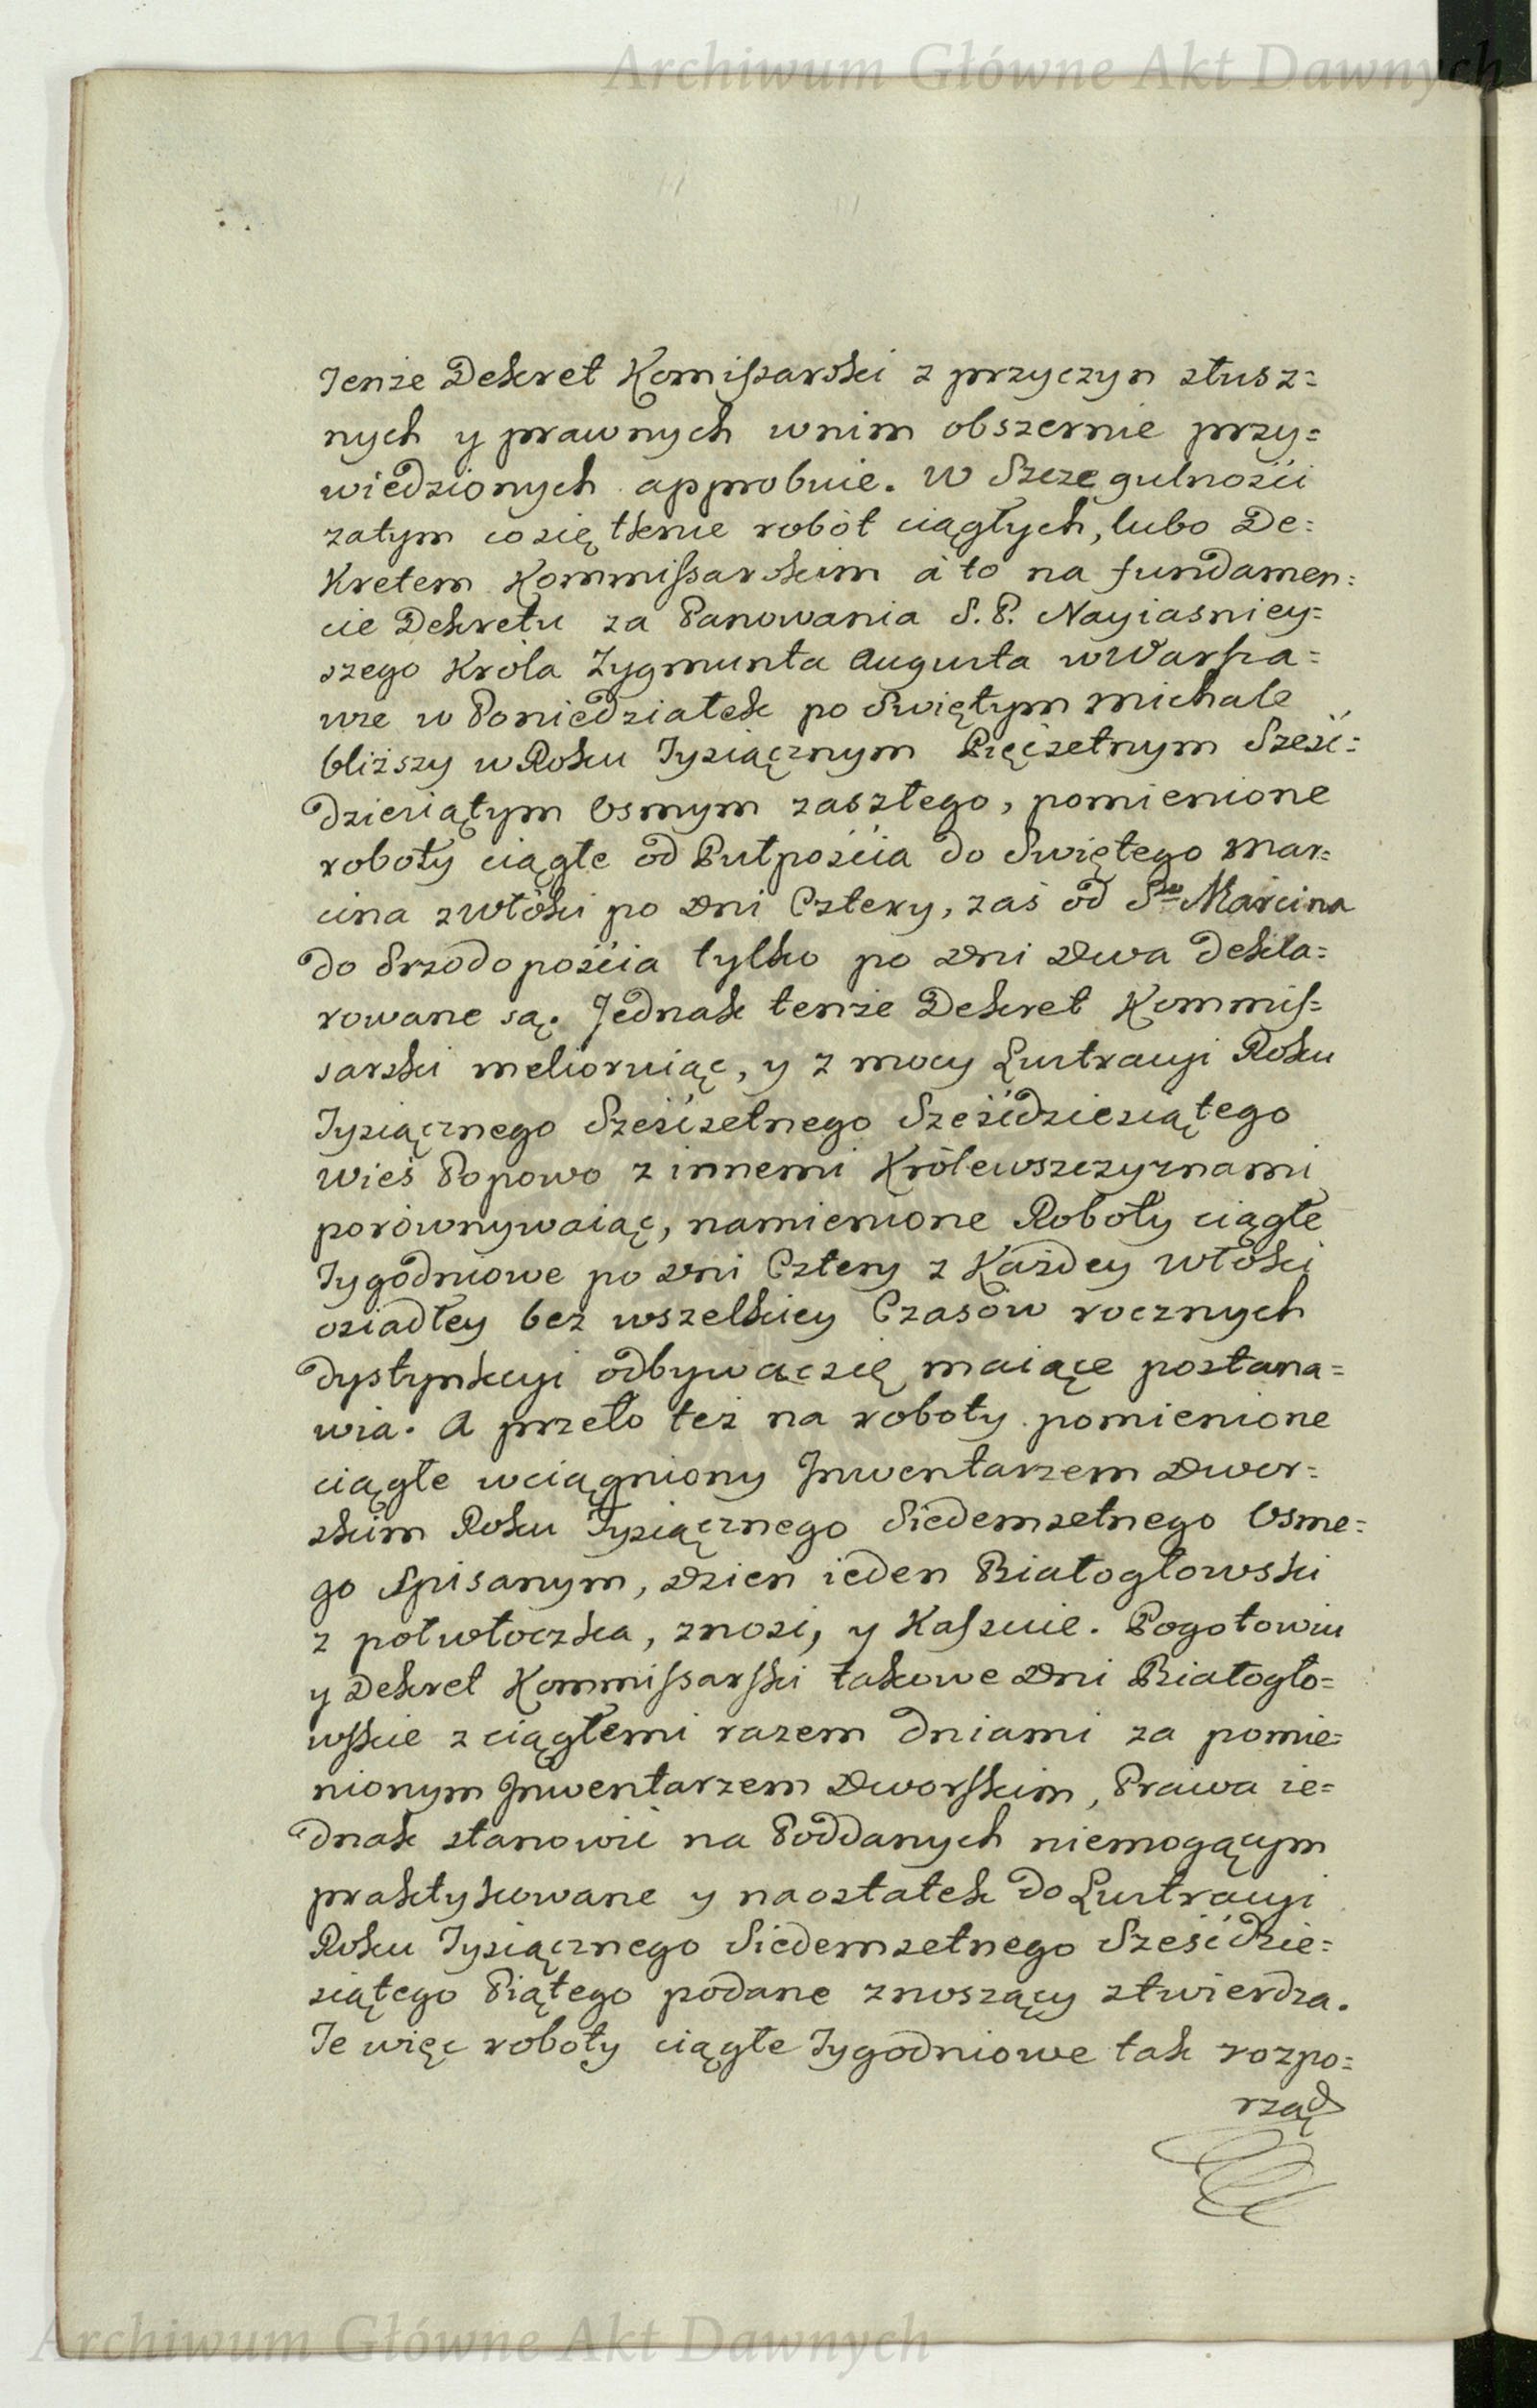 Archiwum Główne Akt Dawnych
Tenże Dekret Komiſsarski z przyczyn słusz=
nych y prawnych wnim obszernie przy=
wiedzionych approbuie. W Szczegulności
zatym co się tknie robót ciągłych, lubo De=
kretem Kommiſsarskim à to na fundamen=
cie Dekretu za Panowania S. P. Nayiasniey=
szego Króla Zygmunta Augusta w Warſza=
wie w Poniedziałek po Swiętym Michale
bliższy w Roku Tysiącznym Pięćsetnym Sześć=
dziesiątym Osmym zaszłego, pomienione
roboty ciągłe od Pułpościa do Swiętego Mar=
cina z włóki po Dni Cztery, zaś od S<sup>go</sup> Marcina
do Srzodopościa tylko po Dni Dwa dekla=
rowane są. Jednak tenże Dekret Kommiſ=
sarski melioruiąc, y z mocy Lustracyi Roku
Tysiącznego Sześćsetnego Sześćdziesiątego
wieś Popowo z innemi Królewszczyznami
porównywaiąc, namienione Roboty ciągłe
Tygodniowe po Dni Cztery z Każdey włóki
osiadłey bez wszelkiey Czasów rocznych
dystynkcyi odbywać się maiące postana=
wia. A przeto też na roboty pomienione
ciągłe wciągniony Inwentarzem Dwor=
skim Roku Tysiącznego Siedemsetnego Osme=
go Spisanym, Dzien ieden Białogłowski
z półwłoczka, znosi, y Kaſsuie. Pogotowiu
y Dekret Kommiſsarſki takowe Dni Białogło=
wſkie z ciągłemi razem dniami za pomie=
nionym Inwentarzem Dworſkim, Prawa ie=
dnak stanowić na Poddanych niemogącym
praktykowane y naostatek do Lustracyi
Roku Tysiącznego Siedemsetnego Sześćdzie=
siątego Piątego podane znoszący stwierdza.
Te więc roboty ciągłe Tygodniowe tak rozpo=
rząd
Archiwum Główne Akt Dawnych